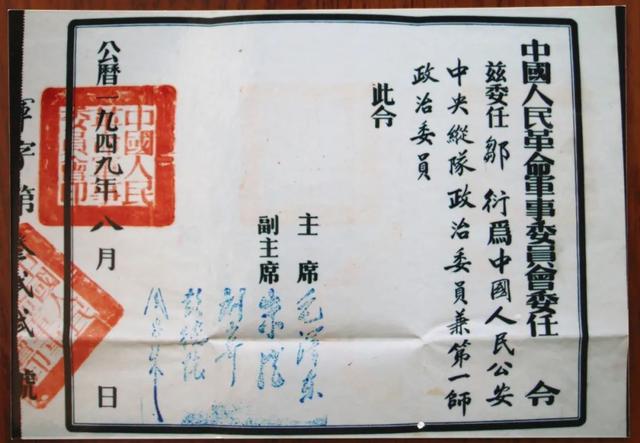 中國人民革命軍事委員會委任令
兹委任鄒衍爲中國人民公安
中央縱隊政治委員兼第一師
政治委員
此令
主席 毛澤東
副主席 朱德
劉少奇
彭德懷
周恩來
公曆一九四九年八月 日
軍字第叁貳貳號
中國人民
革命軍事
委員會印